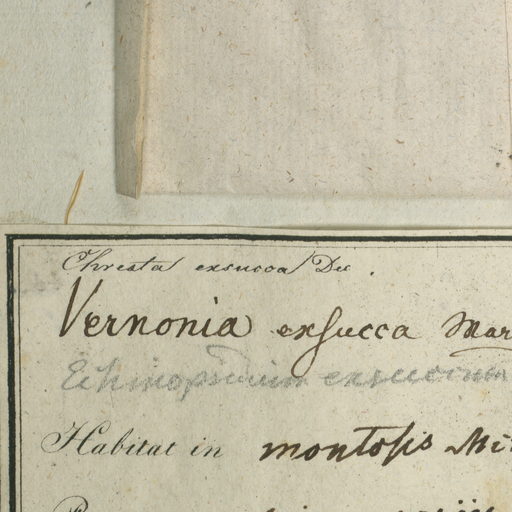 Chresta exsucca Dec.
Vernonia exsucca Mar
exsuccum
Habitat in montosis Mi